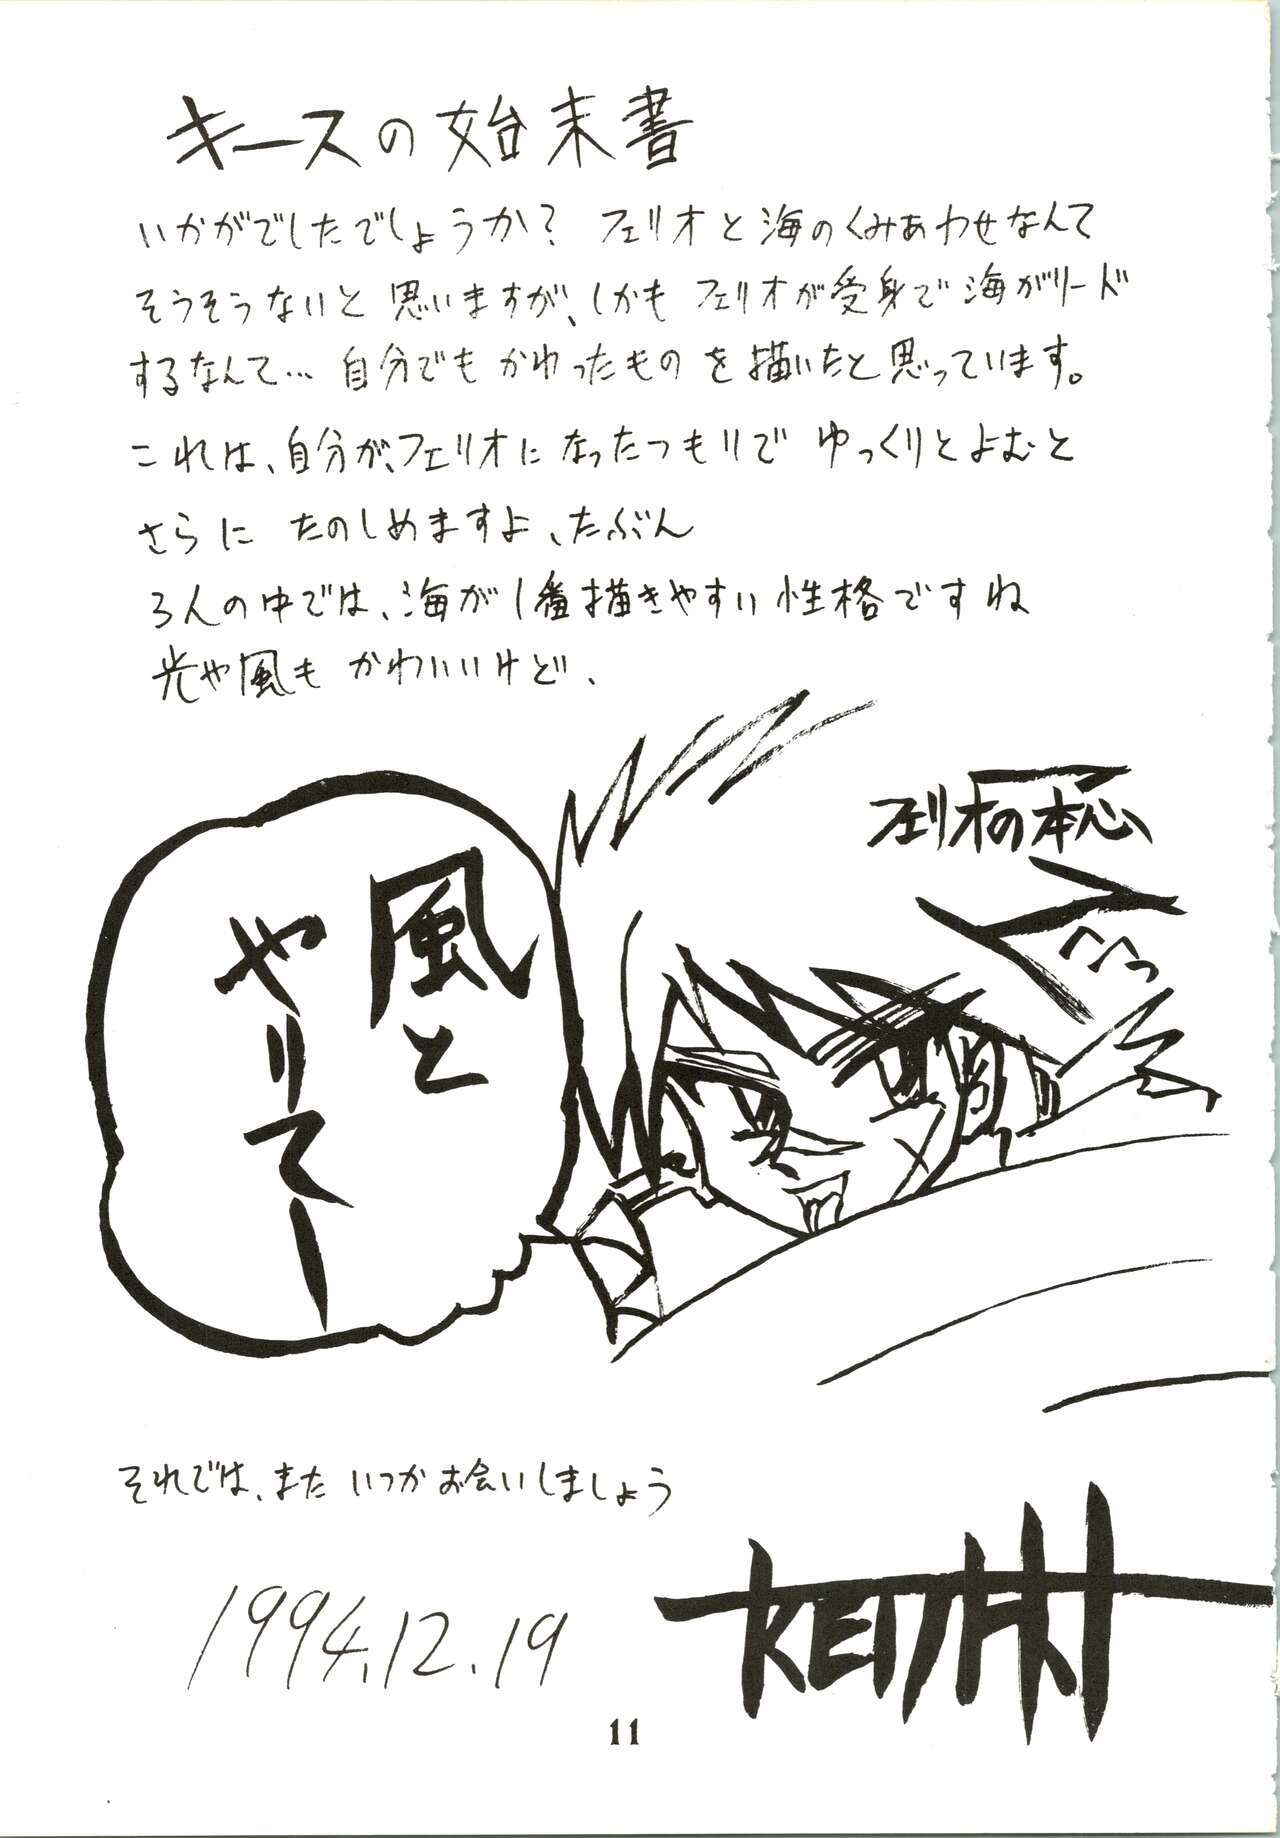 キースの始末書
いかがでしたでしょうか？ フェリオと海のくみあわせなんて
そうそうないと思いますが、しかもフェリオが受身で海がリード
するなんて…自分でもかわったものを描いたと思っています。
これは、自分が、フェリオになったつもりでゆっくりとよむと
さらにたのしめますよ、たぶん
3人の中では、海が1番描きやすい性格ですね
光や風もかわいいけど、
フェリオの本心
風と
やりてー
それでは、またいつかお会いしましょう
1994.12.19
11